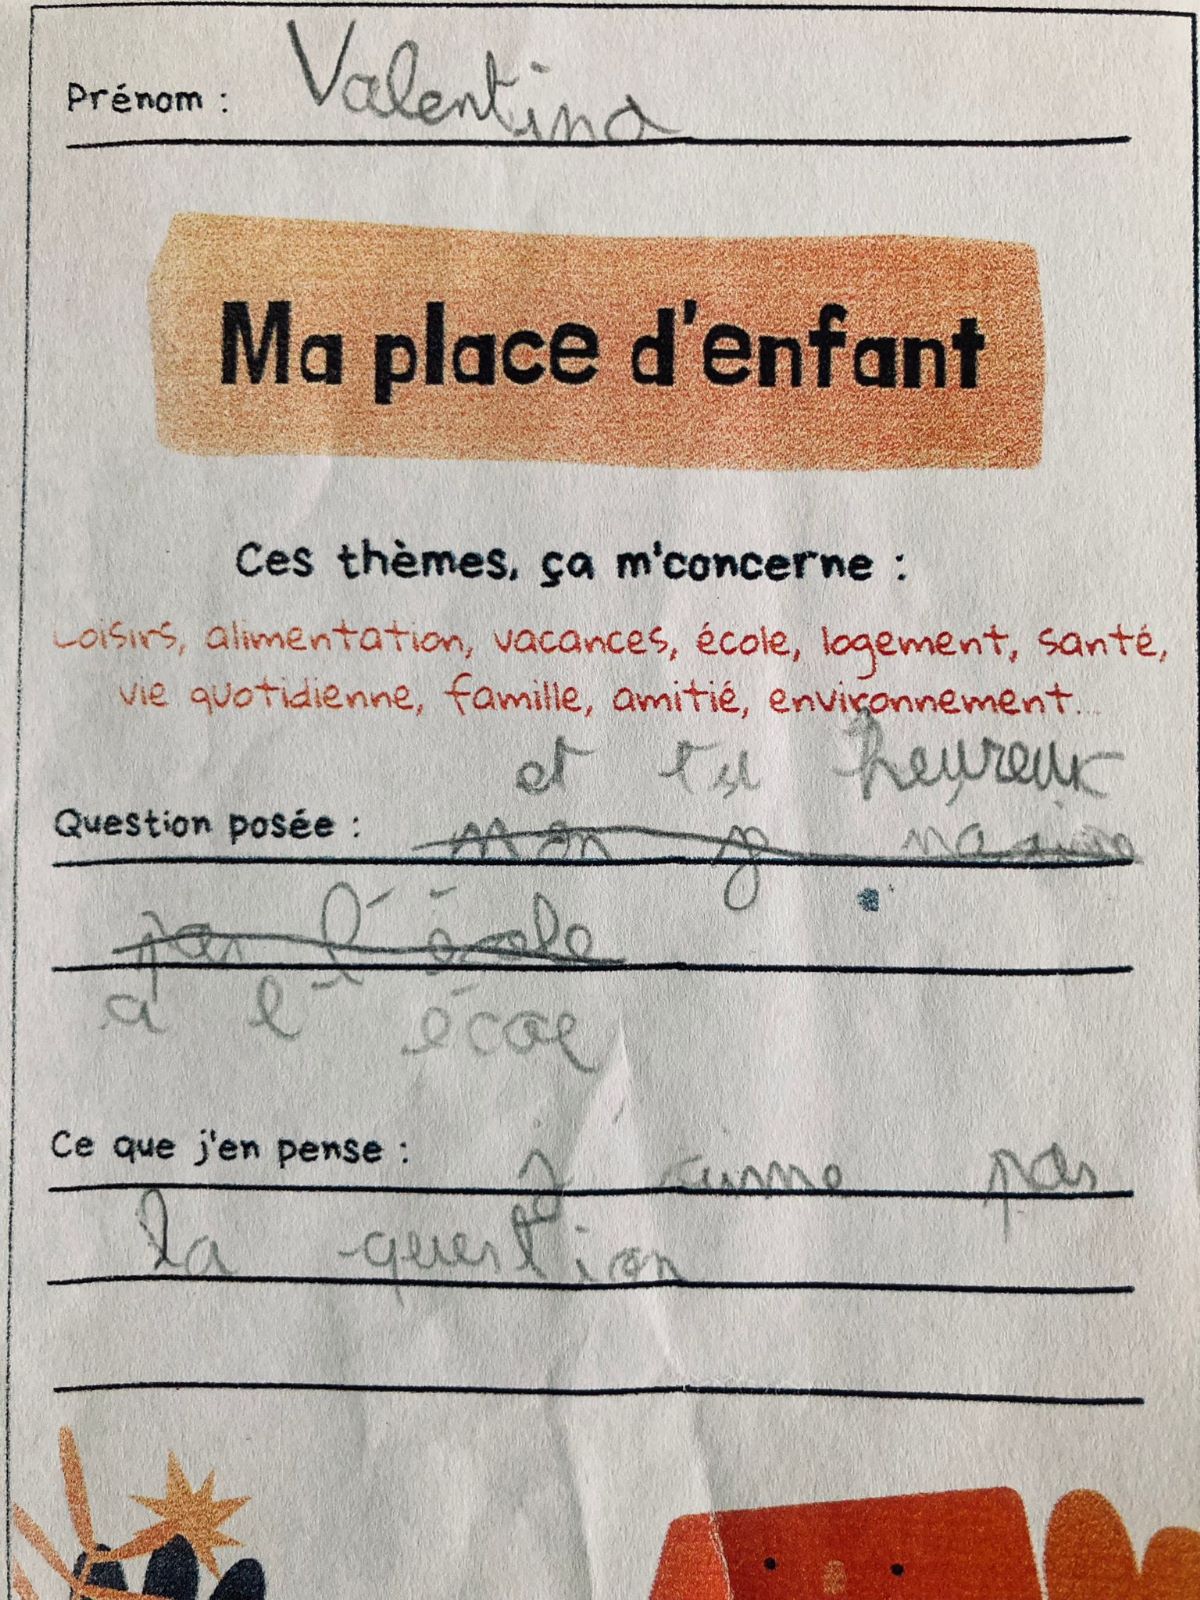 Prénom : Valentina
Ma place d'enfant
Ces thèmes, ça m'concerne :
Loisirs, alimentation, vacances, école, logement, santé,
vie quotidienne, famille, amitié, environnement...
et tu heureux
Question posée : mon
pas l'école
a l'école
Ce que j'en pense : j aime pas
la question